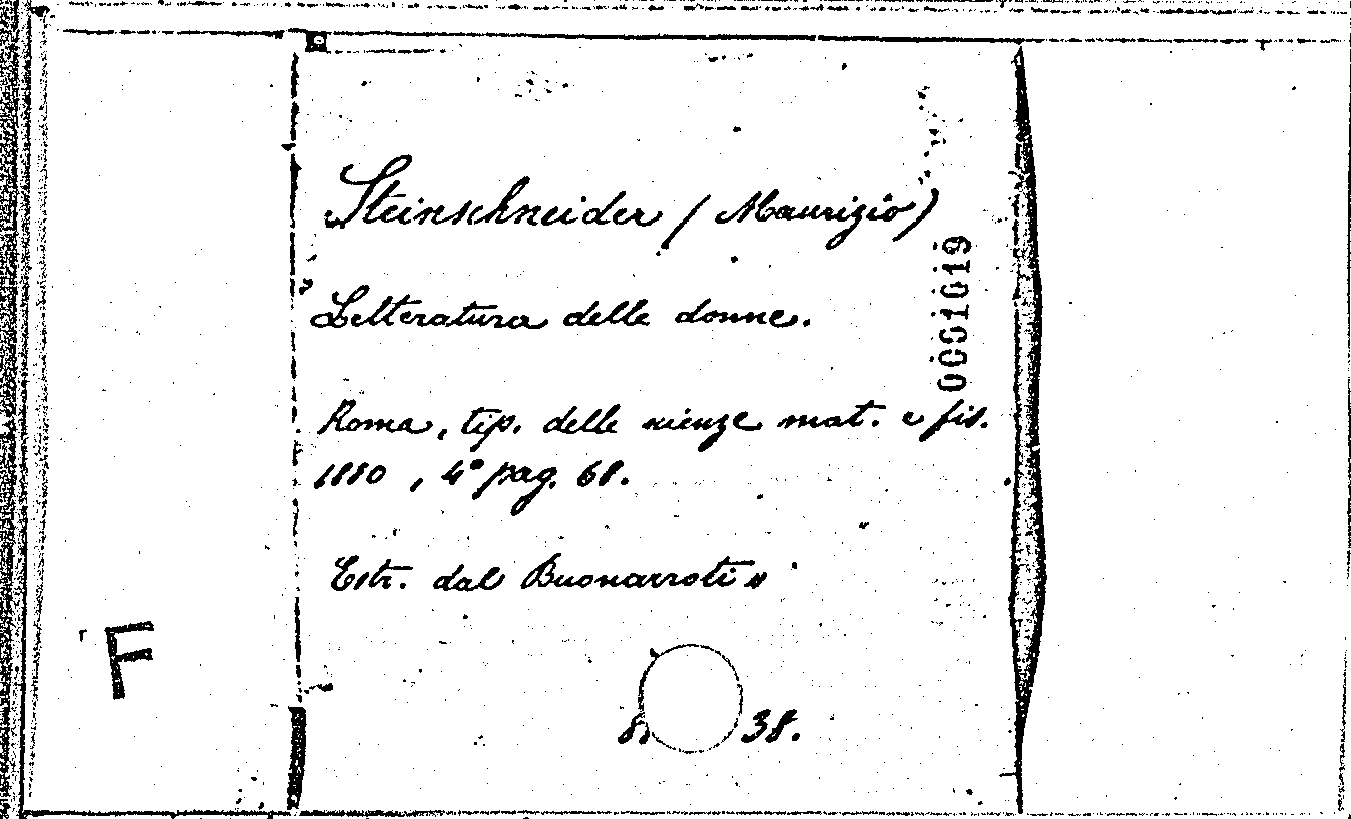 Steinschneider (Maurizio)
0001019
Letteratura delle donne.
Roma, tip. delle scienze mat. e fis.
1880, 4° pag. 68.
Estr. dal Buonarroti »
F
38.